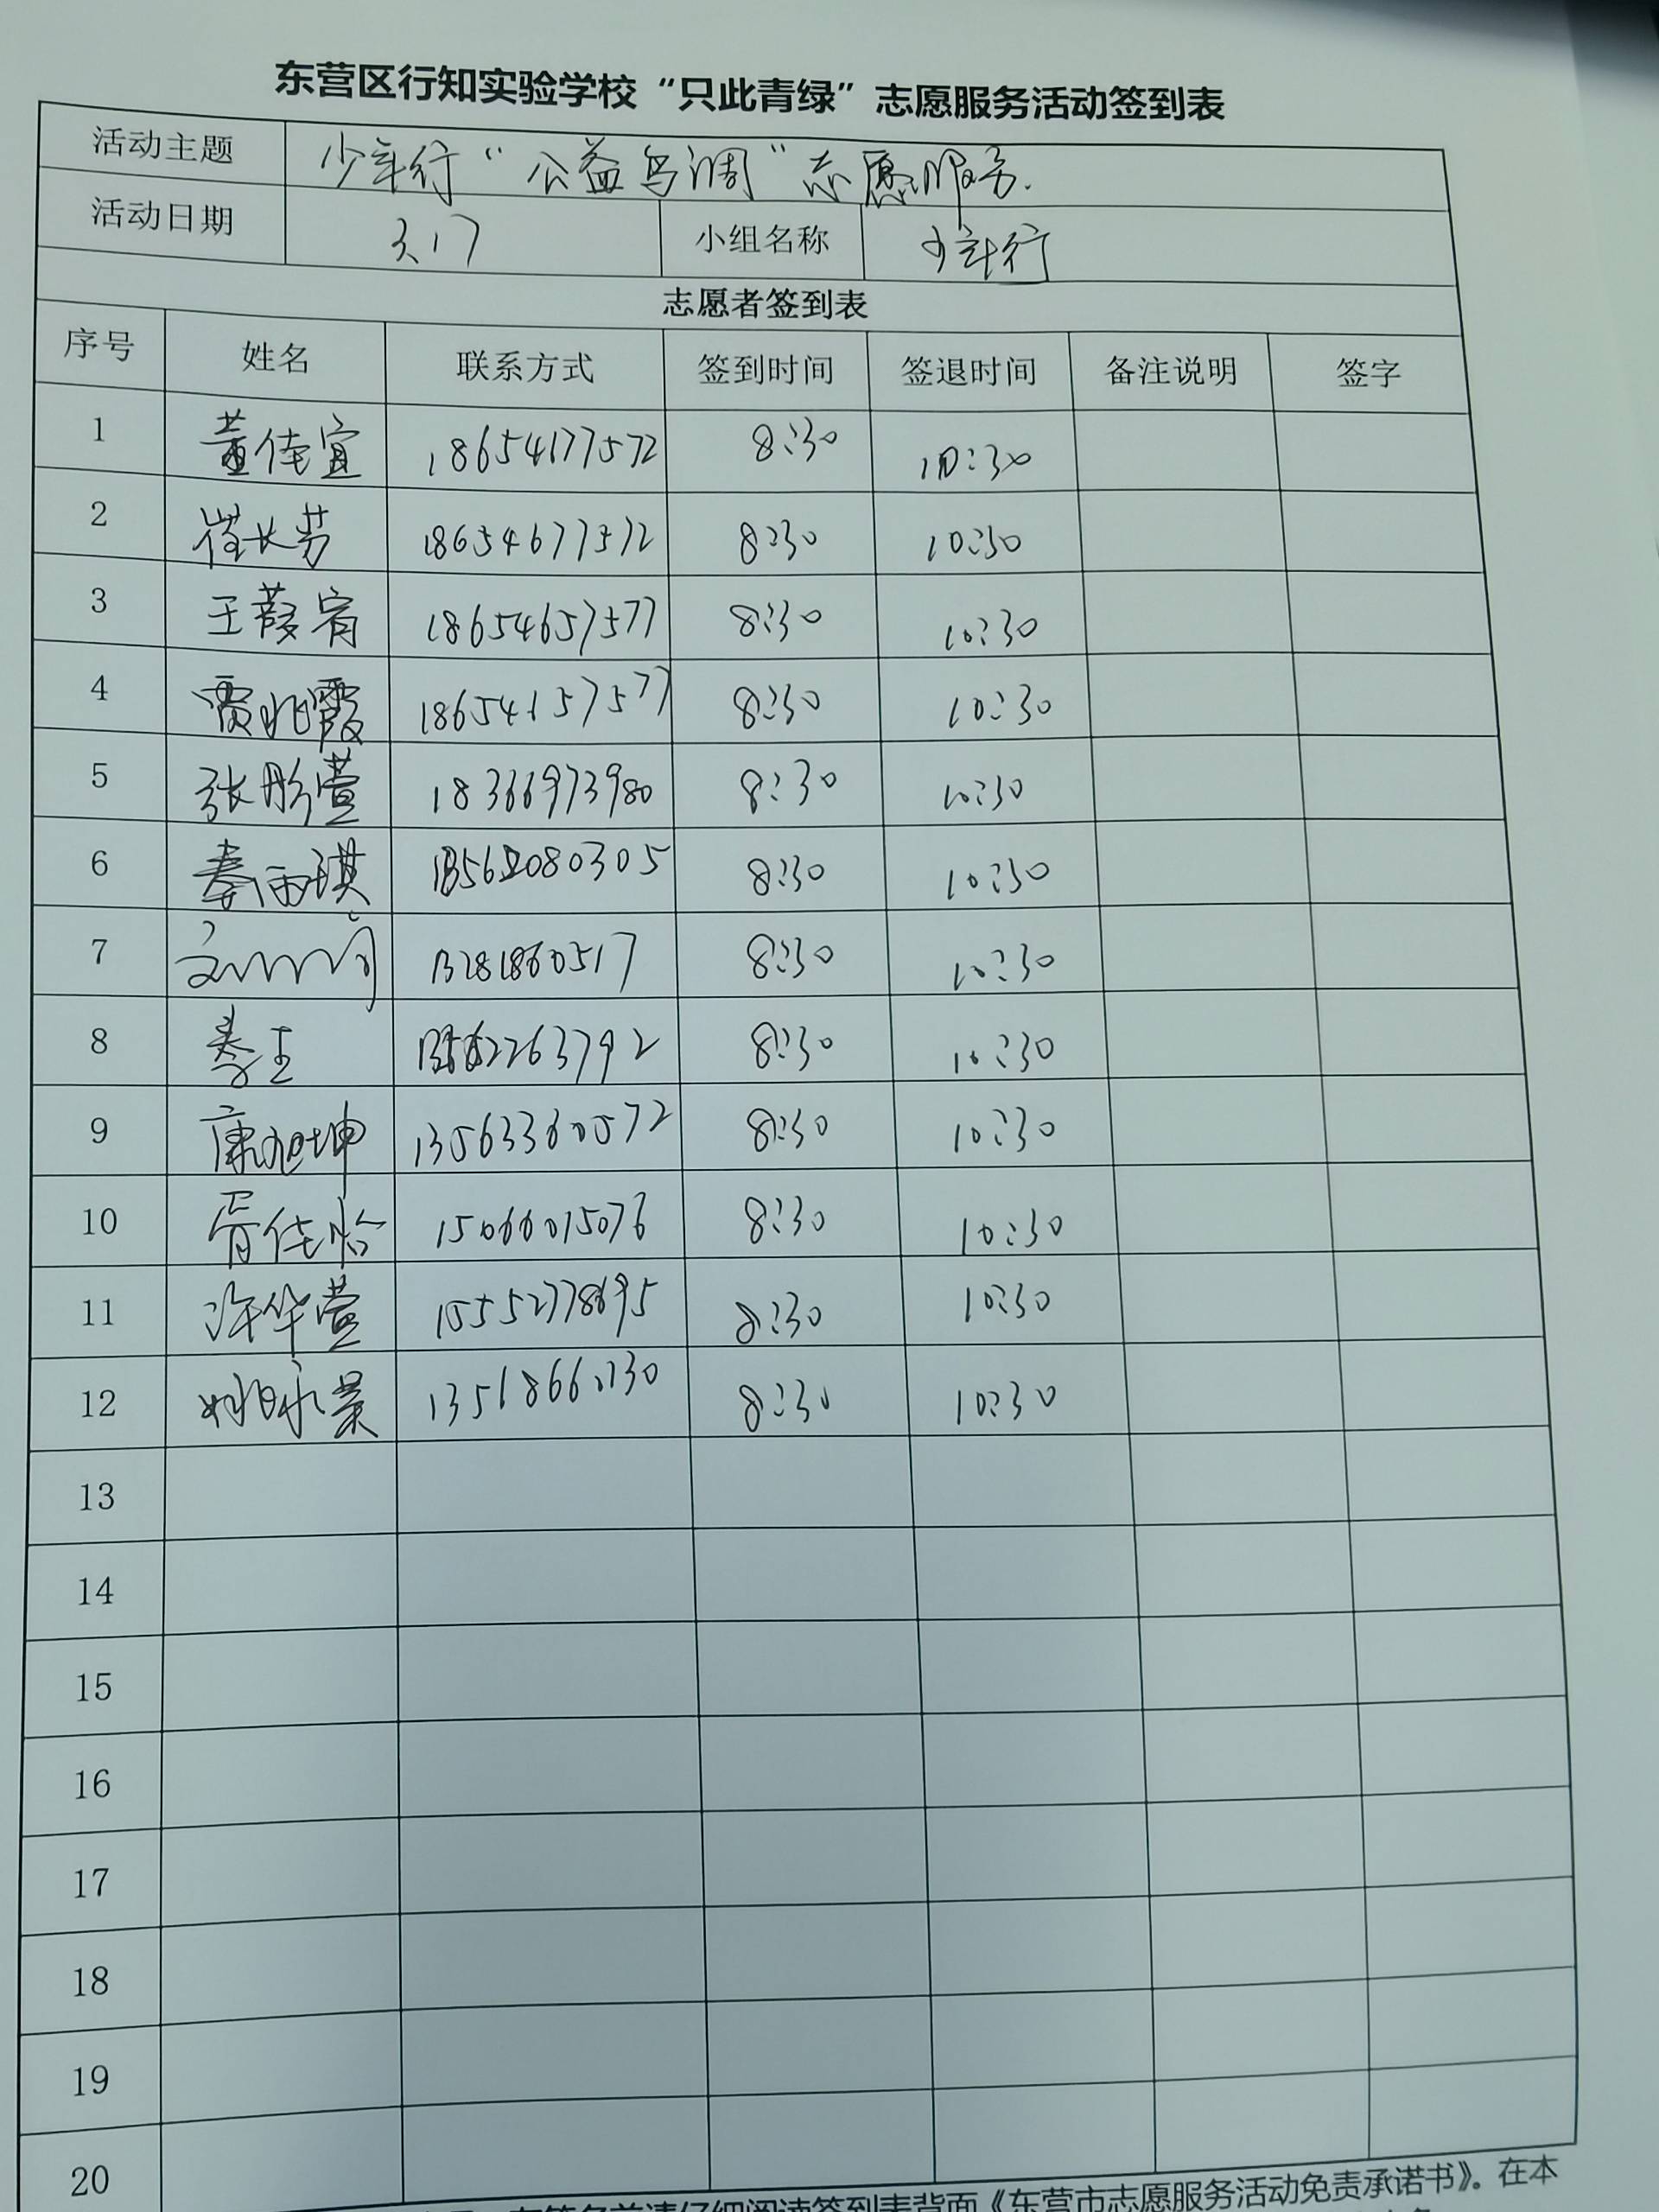 东营区行知实验学校“只此青绿”志愿服务活动签到表
活动主题 少年行“公益鸟调”志愿服务.
活动日期 3.17 小组名称 少年行
志愿者签到表
序号 姓名 联系方式 签到时间 签退时间 备注说明 签字
1 董佳宜 18654177572 8:30 10:30
2 崔长芳 18654677572 8:30 10:30
3 王 18654657577 8:30 10:30
4 贾兆霞 18654157577 8:30 10:30
5 张彤萱 18366973980 8:30 10:30
6 秦雨琪 8:30 10:30
7 8:30 10:30
8 8:30 10:30
9 康旭坤 13563360572 8:30 10:30
10 胥佳怡 15066015076 8:30 10:30
11 许华萱 8:30 10:30
12 姚永景 8:30 10:30
13
14
15
16
17
18
19
20
在签名前请仔细阅读签到表背面《东营市志愿服务活动免责承诺书》。在本